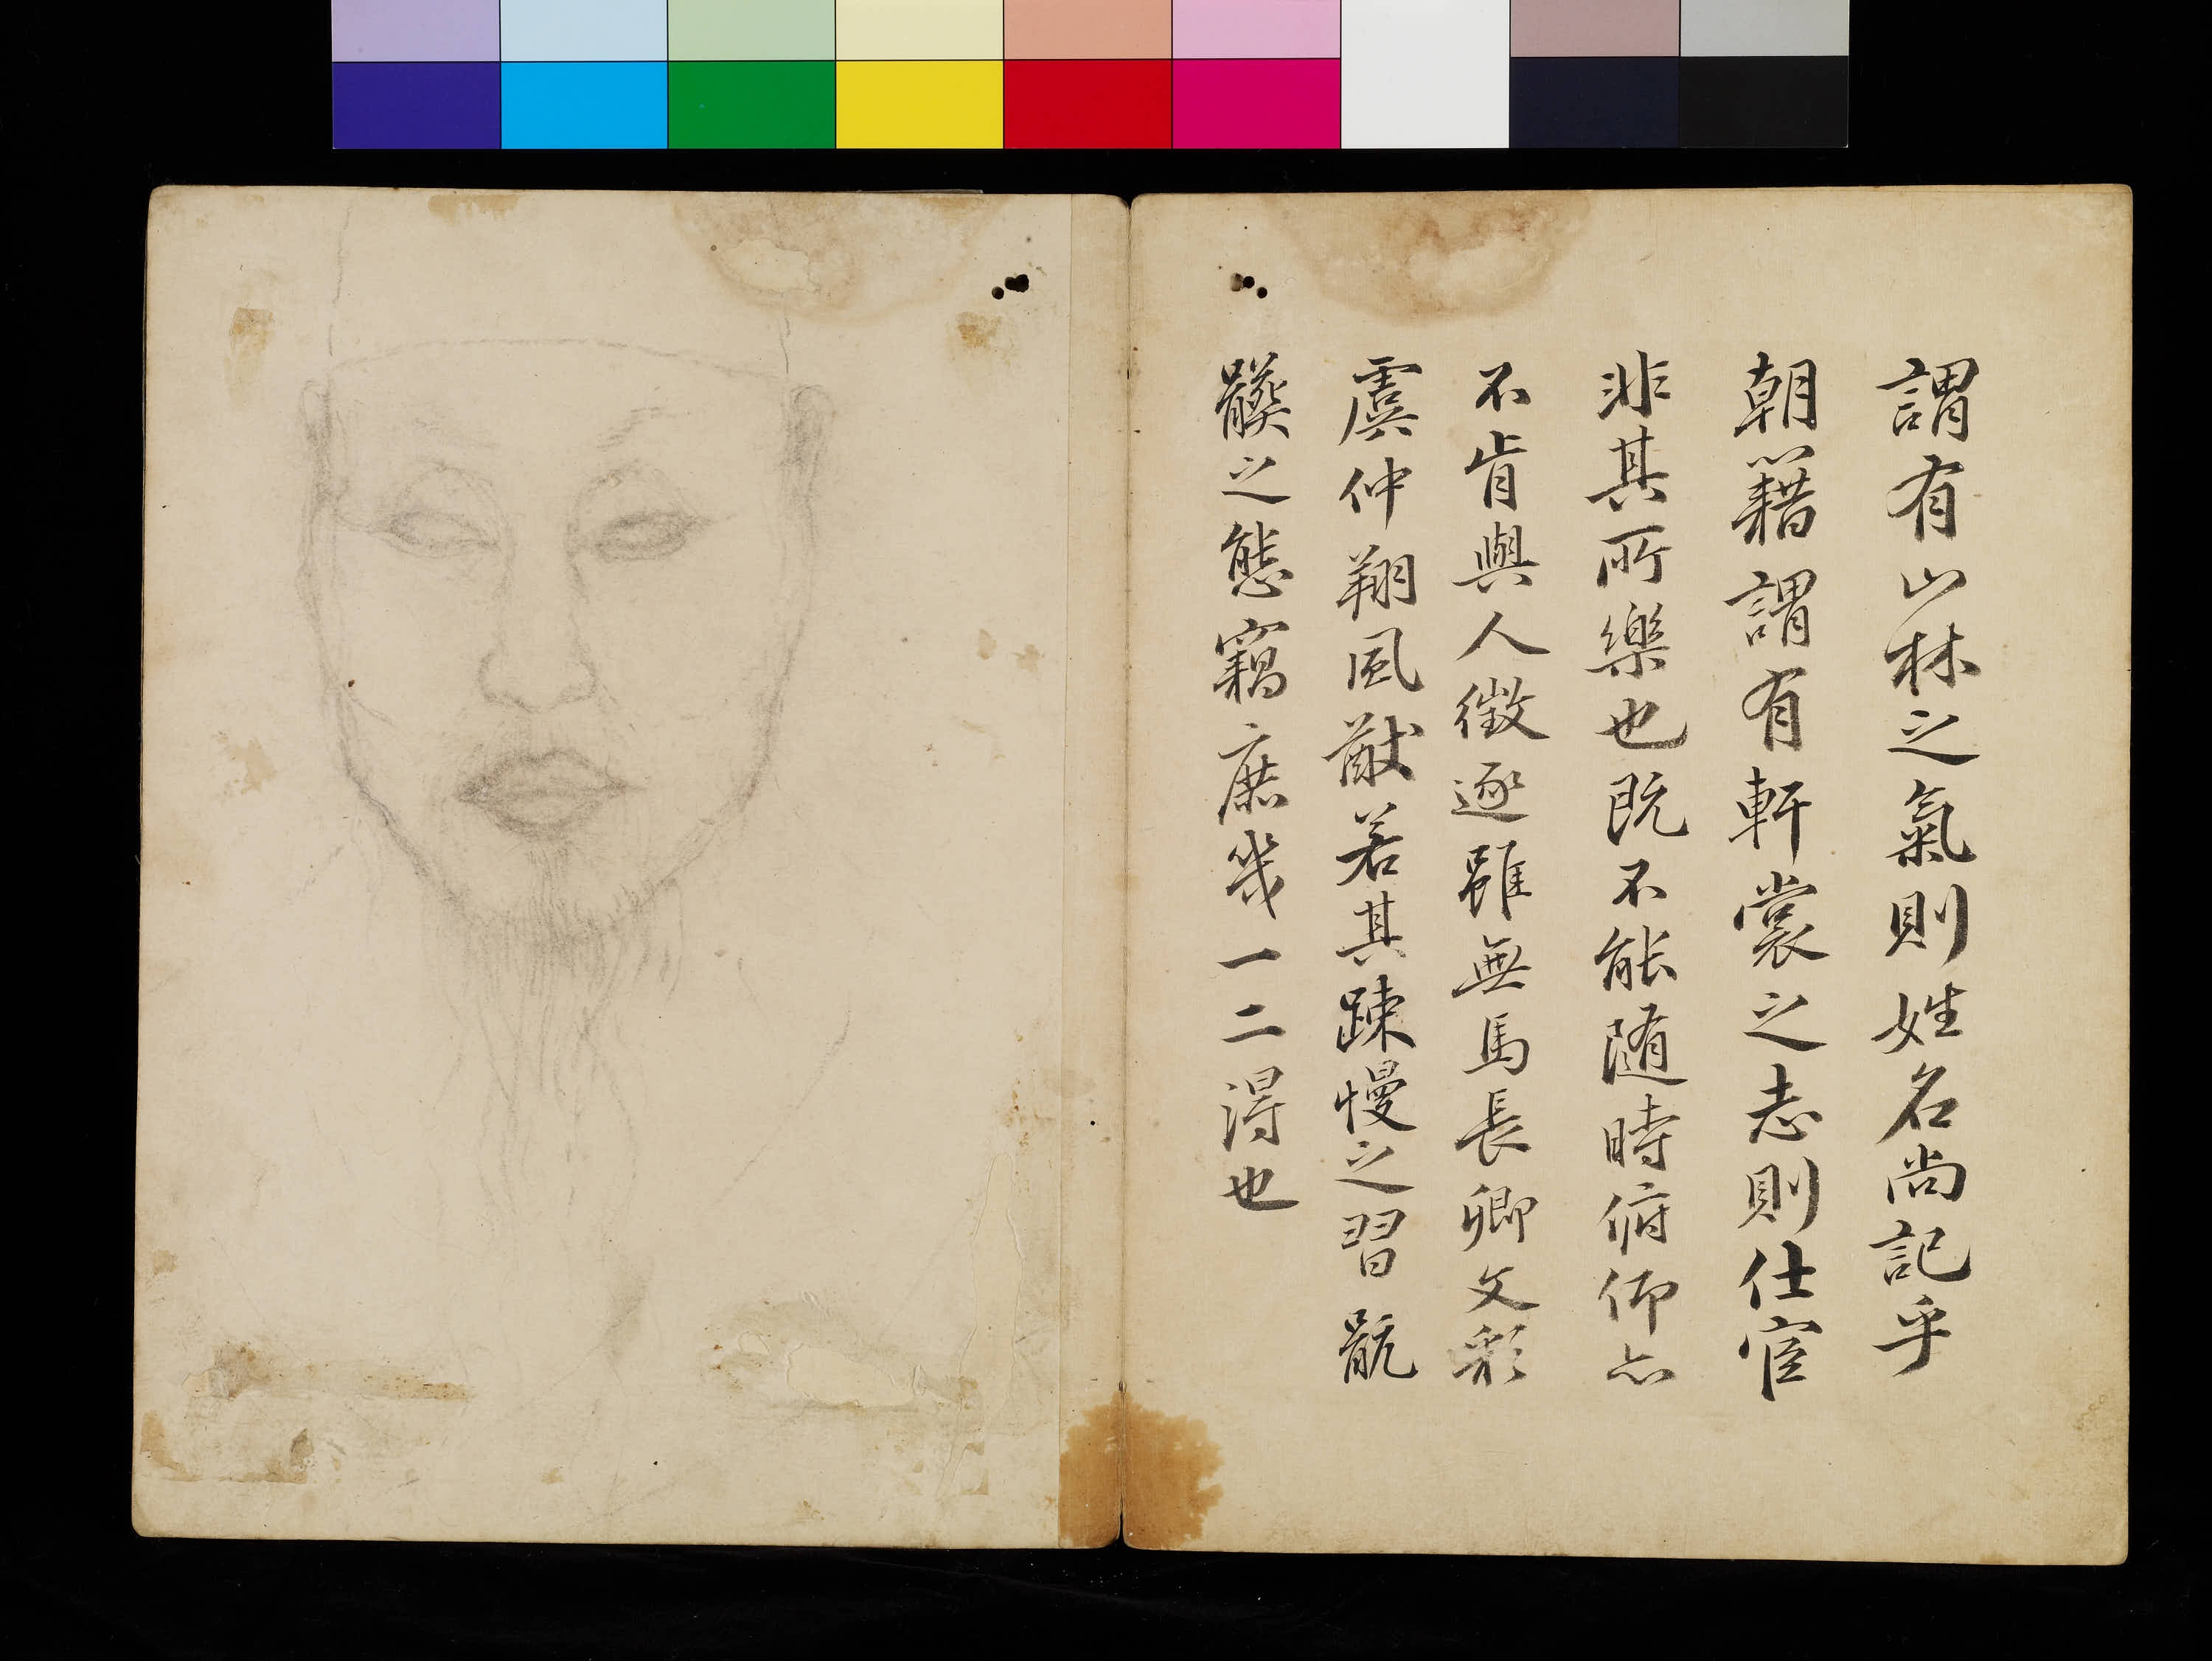 謂有山林之氣則姓名尚記乎
朝籍謂有軒裳之志則仕宦
非其所樂也既不能随時俯仰亦
不肯與人徵逐雖無馬長卿文彩
虞仲翔風猷若其踈慢之習骯
髒之態竊庶幾一二得也